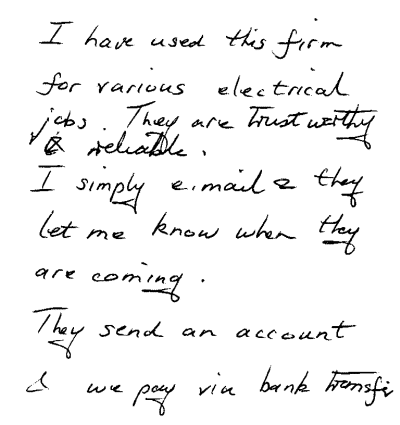 I have used this firm
for various electrical
jobs. They are trustworthy
& reliable.
I simply e.mail & they
let me know when they
are coming.
They send an account
& we pay via bank transfe